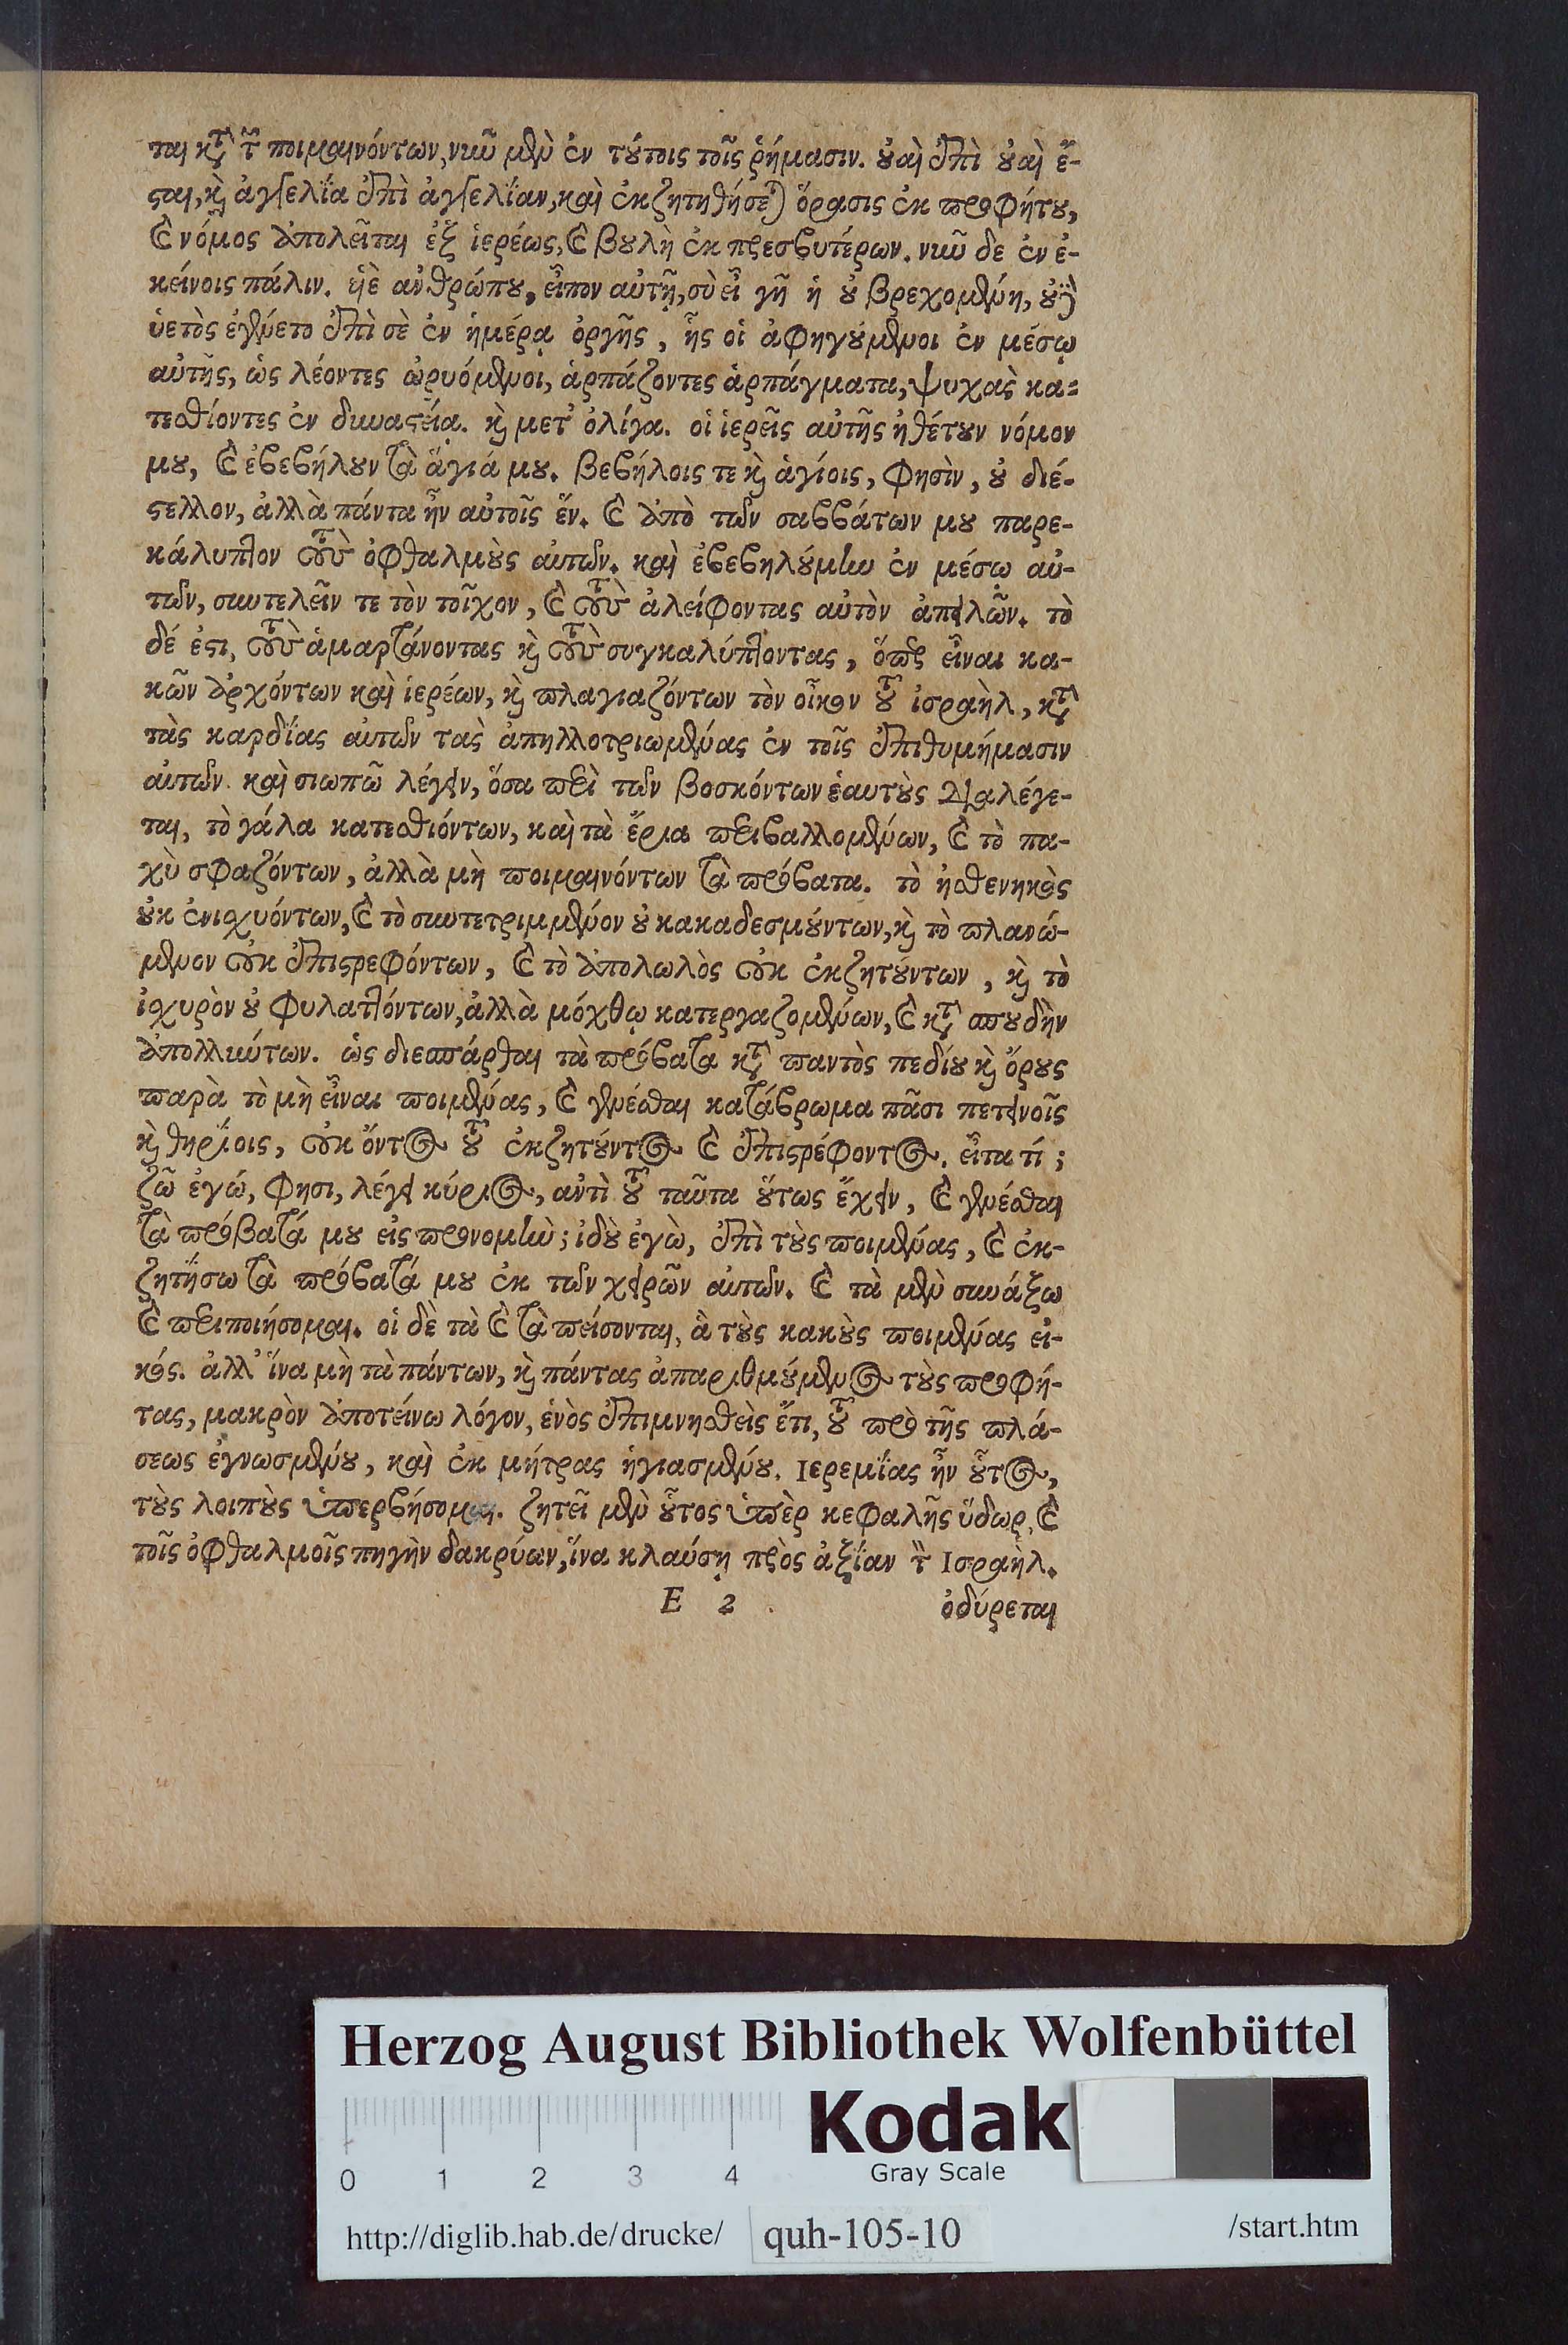 ται κατὰ τῶν ποιμαινόντων, νῦν μὲν ἐν τούτοις τοῖς ῥήμασιν. οὐαὶ ἐπὶ οὐαὶ ἔ-
σται, καὶ ἀγγελία ἐπὶ ἀγγελίαν, καὶ ἐκζητηθήσεται ὅρασις ἐκ προφήτου,
καὶ νόμος ἀπολεῖται ἐξ ἱερέως, καὶ βουλὴ ἐκ πρεσβυτέρων. νῦν δε ἐν ἐ-
κείνοις πάλιν. υἱὲ ἀνθρώπου, εἶπον αὐτῇ, σὺ εἶ γῆ ἡ οὐ βρεχομένη, οὐδὲ
ὑετὸς ἐγένετο ἐπὶ σὲ ἐν ἡμέρᾳ ὀργῆς, ἧς οἱ ἀφηγούμενοι ἐν μέσῳ
αὐτῆς, ὡς λέοντες ὠρυόμενοι, ἁρπάζοντες ἁρπάγματα, ψυχὰς κα-
τεσθίοντες ἐν δυναστείᾳ. καὶ μετ' ὀλίγα. οἱ ἱερεῖς αὐτῆς ἠθέτουν νόμον
μου, καὶ ἐβεβήλουν τὰ ἅγιά μου. βεβήλοις τε καὶ ἁγίοις, φησὶν, οὐ διέ-
στελλον, ἀλλὰ πάντα ἦν αὐτοῖς ἕν. καὶ ἀπὸ τῶν σαββάτων μου παρε-
κάλυπτον τοὺς ὀφθαλμοὺς αὐτῶν. καὶ ἐβεβηλούμην ἐν μέσῳ αὐ-
τῶν, συντελεῖν τε τὸν τοῖχον, καὶ τοὺς ἀλείφοντας αὐτὸν ἀπειλῶν. τὸ
δέ ἐστι, τοὺς ἁμαρτάνοντας καὶ τοὺς συγκαλύπτοντας, ὅπερ εἶναι κα-
κῶν ἀρχόντων καὶ ἱερέων, καὶ πλαγιαζόντων τὸν οἶκον τοῦ ἰσραὴλ, κατὰ
τὰς καρδίας αὐτῶν τὰς ἀπηλλοτριωμένας ἐν τοῖς ἐπιθυμήμασιν
αὐτῶν. καὶ σιωπῶ λέγειν, ὅσα περὶ τῶν βοσκόντων ἑαυτοὺς διαλέγε-
ται, τὸ γάλα κατεσθιόντων, καὶ τὰ ἔρια περιβαλλομένων, καὶ τὸ πα-
χὺ σφαζόντων, ἀλλὰ μὴ ποιμαινόντων τὰ πρόβατα. τὸ ἠσθενηκὸς
οὐκ ἐνισχυόντων, καὶ τὸ συντετριμμένον οὐ κακαδεσμούντων, καὶ τὸ πλανώ-
μενον οὐκ ἐπιστρεφόντων, καὶ τὸ ἀπολωλὸς οὐκ ἐκζητούντων, καὶ τὸ
ἰσχυρὸν οὐ φυλαττόντων, ἀλλὰ μόχθῳ κατεργαζομένων, καὶ κατὰ σπουδὴν
ἀπολλύντων. ὡς διεσπάρθαι τὰ πρόβατα κατὰ παντὸς πεδίου καὶ ὄρους
παρὰ τὸ μὴ εἶναι ποιμένας, καὶ γενέσθαι κατάβρωμα πᾶσι πετεινοῖς
καὶ θηρίοις, οὐκ ὄντος τοῦ ἐκζητοῦντος καὶ ἐπιστρέφοντος. εἶτα τί;
ζῶ ἐγώ, φησι, λέγει κύριος, ἀντὶ τοῦ ταῦτα οὕτως ἔχειν, καὶ γενέσθαι
τὰ πρόβατά μου εἰς προνομὴν; ἰδοὺ ἐγὼ, ἐπὶ τοὺς ποιμένας, καὶ ἐκ-
ζητήσω τὰ πρόβατά μου ἐκ τῶν χειρῶν αὐτῶν. καὶ τὰ μὲν συνάξω
καὶ περιποιήσομαι. οἱ δὲ τὰ καὶ τὰ πείσονται, ἃ τοὺς κακοὺς ποιμένας εἰ-
κός. ἀλλ' ἵνα μὴ τὰ πάντων, καὶ πάντας ἀπαριθμούμενος τοὺς προφή-
τας, μακρὸν ἀποτείνω λόγον, ἑνὸς ἐπιμνησθεὶς ἔτι, τοῦ πρὸ τῆς πλά-
σεως ἐγνωσμένου, καὶ ἐκ μήτρας ἡγιασμένου. Ιερεμίας ἦν οὗτος,
τοὺς λοιποὺς ὑπερβήσομαι. ζητεῖ μὲν οὗτος ὑπὲρ κεφαλῆς ὕδωρ, καὶ
τοῖς ὀφθαλμοῖς πηγὴν δακρύων, ἵνα κλαύσῃ πρὸς ἀξίαν τὸν Ισραὴλ.
E 2
ὀδύρεται
Herzog August Bibliothek Wolfenbüttel
Kodak
Gray Scale
0 1 2 3 4
http://diglib.hab.de/drucke/ quh-105-10 /start.htm